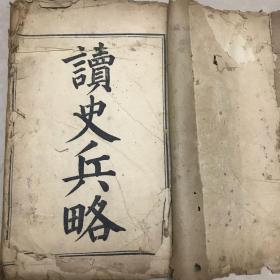 讀史兵略